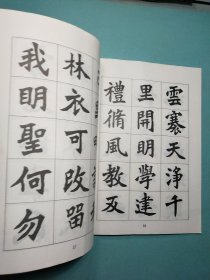 雲褰天淨千
里開明學達
禮脩風教及
林衣可改留
我明聖何勿